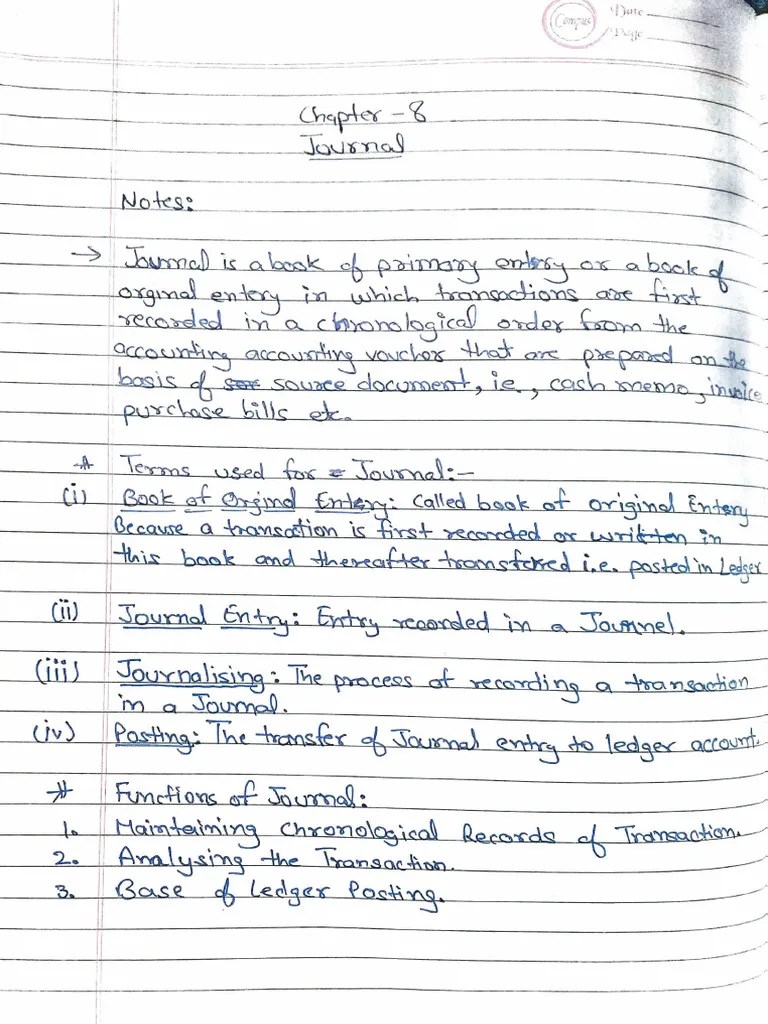 Compus
Date
Page
Chapter - 8
Journal
Notes:
→ Journal is a book of primary entery or a book of
orginal entery in which transactions are first
recorded in a chronological order from the
accounting accounting vouchor that are prepared on the
basis of source document, ie, cash memo, invoice
purchase bills etc.
* Terms used for Journal:-
(i) Book of Orginal Entery: Called book of original Entery
Because a transaction is first recorded or written in
this book and thereafter transferred i.e. posted in Ledger
(ii) Journal Entry: Entry recorded in a Journel.
(iii) Journalising: The process of recording a transaction
in a Journal.
(iv) Posting: The transfer of Journal entry to ledger account.
* Functions of Journal:
1. Maintaining Chronological Records of Transaction.
2. Analysing the Transaction.
3. Base of Ledger Posting.